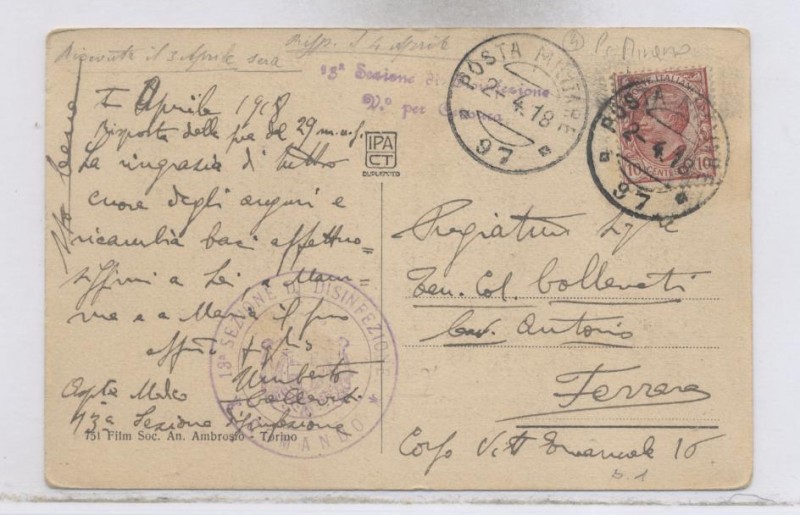 Ricevuta il 3 Aprile sera
Risp. il 4 Aprile
13ª Sezione di Disinfezione
Nº per Censura
POSTA MILITARE
2. 4. 18
97
POSTA MILITARE
2. 4. 18
97
POSTE ITALIANE
10 CENTESIMI 10
Aprile 1918
Risposta della sua del 29 m.s.
La ringrazia di tutto
cuore degli auguri e
ricambia baci affettuo=
sissimi a Lei a Mam=
ma e a Maria il suo
affmo figlio
Umberto
Collevati
13ª Sezione Disinfezione
IPA
CT
13ª SEZIONE DI DISINFEZIONE
COMANDO
751 Film Soc. An. Ambrosio - Torino
Ten. Col. Collevati
Cav. Antonio
Ferrara
Corso Vitt Emanuele 16